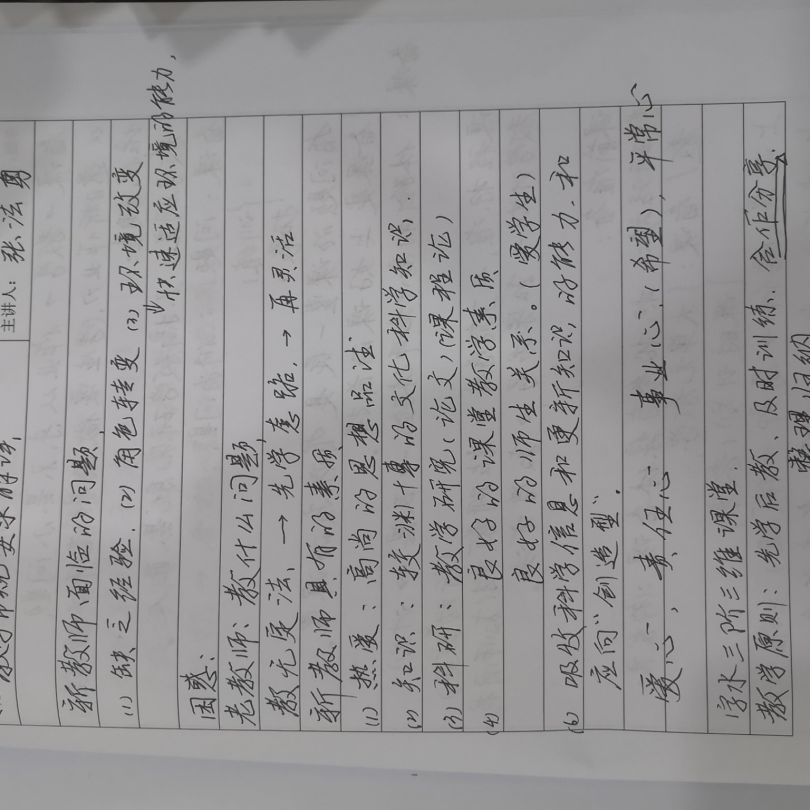 主讲人: 张法勇
新教师面临的问题,
(1) 缺乏经验. (2) 角色转变 (3) 环境改变
↓快速适应环境的能力,
困惑:
老教师: 教什么问题,
教无定法, → 先学套路, → 再灵活
新教师具有的素质
(1) 热爱: 高尚的思想品法
(2) 知识: 较渊博的文化科学知识,
(3) 科研: 教学研究(论文,课程论)
(4) 良好的课堂教学素质
良好的师生关系。(爱学生)
(6) 吸收科学信息和更新知识,的能力.和
应向"创造型".
爱心, 责任心 事业心.(希望), 平常心
字水三阶三维课堂.
教学原则: 先学后教、及时训练. 合作分享.
整理归纳